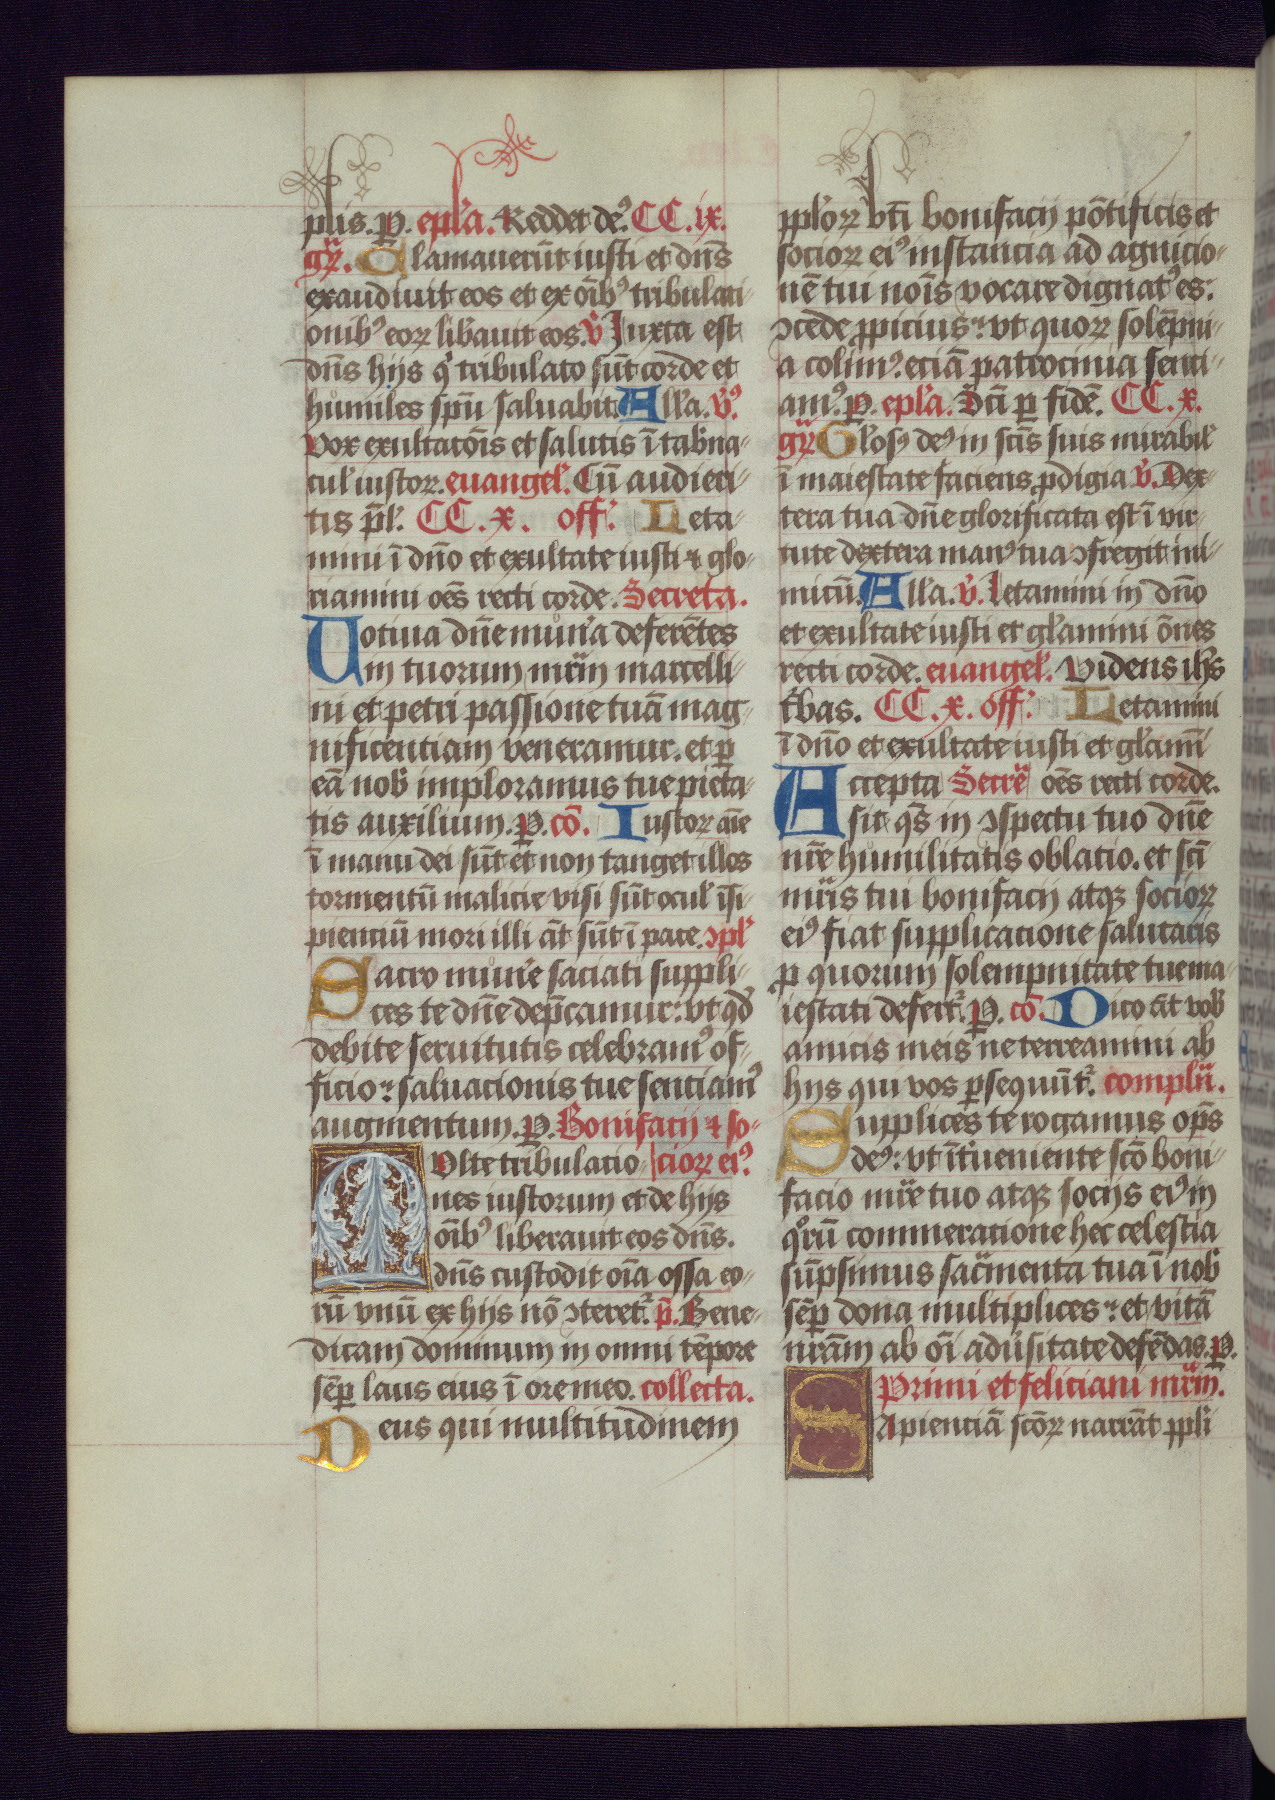 plis. P. epl'a. Reddet de9 CC. ix.
gr̄. Clamauerūt iusti et dn̄s
exaudiuit eos et ex oīb9 tribulati-
onib9 eorꝝ lib'auit eos. v̄ Juxta est
dn̄s hijs qͥ tribulato sūt corde et
humiles spū saluabit. Alla. v̄9
Vox exultatōis et salutis ī tab'na-
cul' iustorꝝ. euangel'. Cū audieri-
tis p̄l'. CC. x. off'. Leta-
mini ī dn̄o et exultate iusti ⁊ glo-
riamini oēs recti corde. Secreta.
Uotiua dn̄e mun'a deferētes
in tuorum mr̄im marcelli-
ni et petri passione tuā mag-
nificentiam veneramur. et ꝑ
eā nob' imploramus tue pieta-
tis auxilium. P. cō. Iustorꝝ aīe
ī manu dei sūt et non tanget illos
tormentū malicie visi sūt ocul' īsi-
pienciū mori illi āt sūt ī pace. ꝯpl'
Sacro mun'e saciati suppli-
ces te dn̄e dep̄camur: vt qd'
debite seruitutis celebram9 of-
ficio: saluacionis tue sentiam9
augmentum. P. Bonifacij ⁊ so-
Multe tribulacio- ciorꝝ ei9
nes iustorum et de hijs
oīb9 liberauit eos dn̄s.
dn̄s custodit oīa ossa eo-
rū vnū ex hijs nō ꝯteret᷑. p̄. Bene-
dicam dominum in omni tēpore
sēꝑ laus eius ī ore meo. collecta.
Deus qui multitudinem
ppl'orꝝ btī bonifacij pōtificis et
sociorꝝ ei9 instancia ad agnicio-
nē tui noīs vocare dignat9 es:
ꝯcede ꝓpicius: vt quorꝝ solēpni-
a colim9. eciā patrocinia senti-
am9. P. epl'a. Sc̄i ꝑ fidē. CC. x.
gr̄ Glo'os9 de9 in sc̄is suis mirabil'
ī maiestate faciens ꝓdigia v̄. Dex-
tera tua dn̄e glorificata est ī vir-
tute dextera man9 tua ꝯfregit ini-
micū. Alla. v̄. Letamini in dn̄o
et exultate iusti et gl'amini ōnes
recti corde. euangel'. Videns ih's
t'bas. CC. x. off'. Letamini
ī dn̄o et exultate iusti et gl'amī
Accepta Secre' oēs recti corde.
sit qs̄ in ꝯspectu tuo dn̄e
nr̄e humilitatis oblatio. et sc̄i
mr̄is tui bonifacij atqꝫ sociorꝝ
ei9 fiat supplicacione salutaris
ꝓ quorum solempnitate tue ma-
iestati defert᷑. P. cō. Dico āt vob'
amicis meis ne terreamini ab
hijs qui vos ꝑsequūt᷑. complū.
Supplices te rogamus op̄s
de9: vt īt'ueniente sc̄o boni-
facio mr̄e tuo atqꝫ socijs ei9 in
qͦrū commeratione hec celestia
sūpsimus sac'menta tua ī nob'
sēꝑ dona multiplices: et vitā
nr̄am ab oī adu'sitate defēdas. P.
Primi et feliciani mr̄im.
Sapienciā sc̄orꝝ narrāt ppl'i